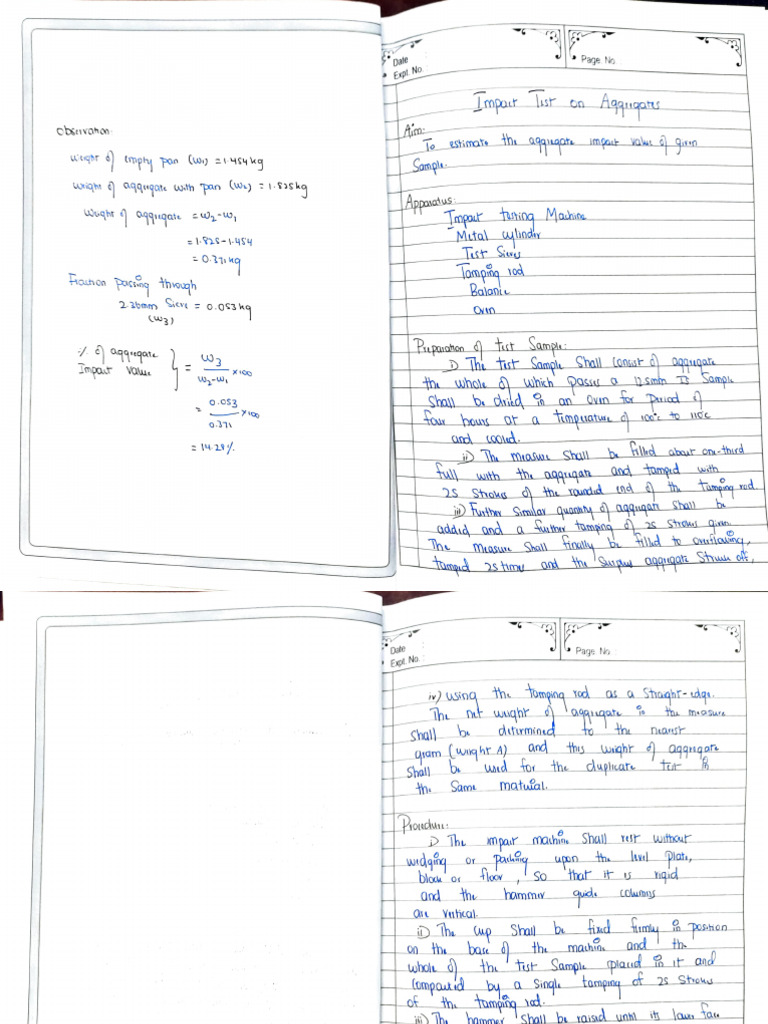 Observation:
Weight of empty pan (w₁) = 1.454kg
Weight of aggregate with pan (w₂) = 1.825kg
Weight of aggregate = w₂-w₁
= 1.825-1.454
= 0.371kg
Fraction passing through
2.36mm Sieve = 0.053kg
(w₃)
% of aggregate
Impact value } = w₃ / w₂-w₁ ×100
= 0.053 / 0.371 ×100
= 14.28%
Date
Expl. No.
Page. No.
Impact Test on Aggregates
Aim:
To estimate the aggregate impact value of given
Sample.
Apparatus:
Impact testing Machine
Metal cylinder
Test Sieves
Tamping rod
Balance
Oven
Preparation of test Sample:
i) The test Sample Shall consist of aggregate
the whole of which passes a 12.5mm IS Sample
Shall be dried in an oven for period of
four hours at a temperature of 100°c to 110°c
and cooled.
ii) The measure Shall be filled about one-third
full with the aggregate and tamped with
25 Strokes of the rounded end of the tamping rod.
iii) Further Similar quantity of aggregate Shall be
added and a further tamping of 25 Strokes given.
The measure Shall finally be filled to overflowing,
tamped 25 times and the Surplus aggregate Struck off,
Date
Expl. No.
Page. No.
iv) using the tamping rod as a Straight-edge.
The net weight of aggregate in the measure
Shall be determined to the nearest
gram (weight A) and this weight of aggregate
Shall be used for the duplicate test in
the Same material.
Procedure:
i) The impact machine Shall rest without
wedging or packing upon the level plate,
block or floor, so that it is rigid
and the hammer guide columns
are vertical.
ii) The cup Shall be fixed firmly in position
on the base of the machine and the
whole of the test Sample placed in it and
Compacted by a Single tamping of 25 Strokes
of the tamping rod.
iii) The hammer Shall be raised until its lower face